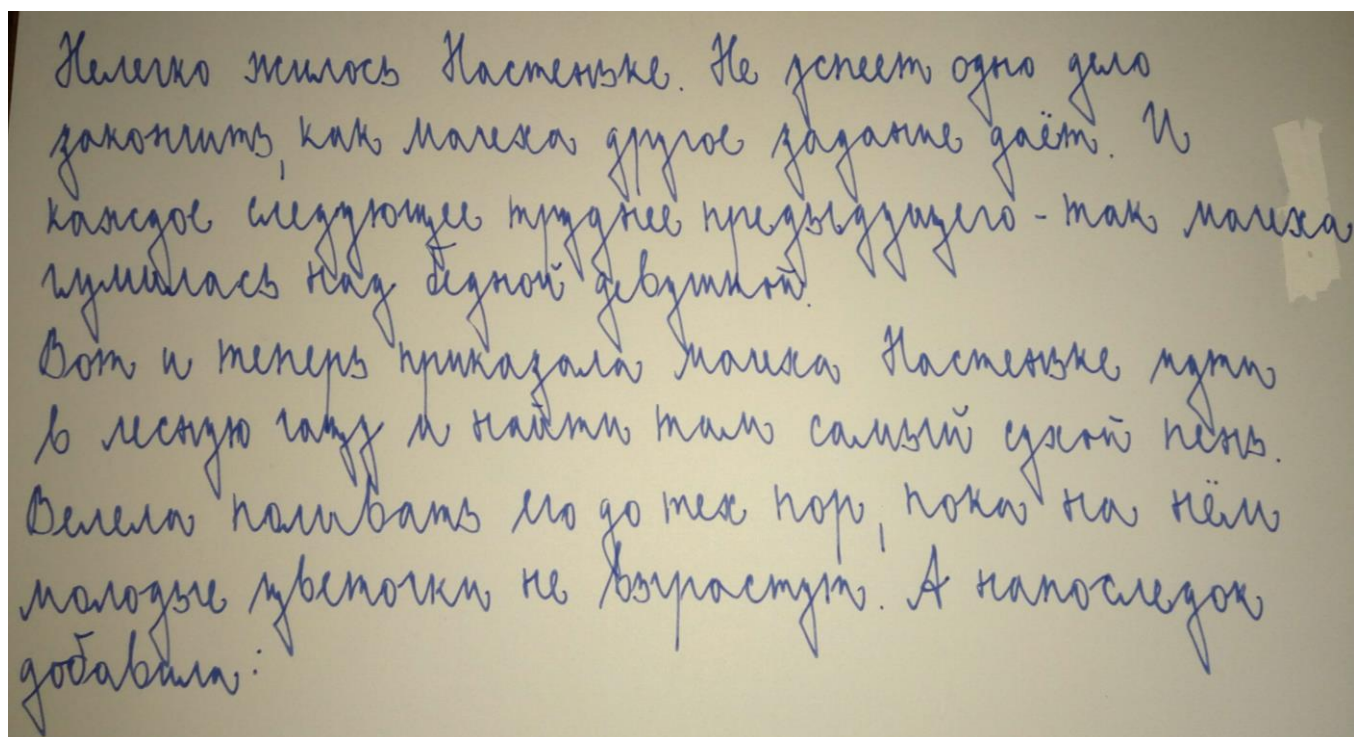 Нелегко жилось Настеньке. Не успеет одно дело
закончить, как мачеха другое задание даёт. И
каждое следующее труднее предыдущего - так мачеха
глумилась над бедной девушкой.
Вот и теперь приказала мачеха Настеньке идти
в лесную чащу и найти там самый сухой пень.
Велела поливать его до тех пор, пока на нём
молодые цветочки не вырастут. А напоследок
добавила: